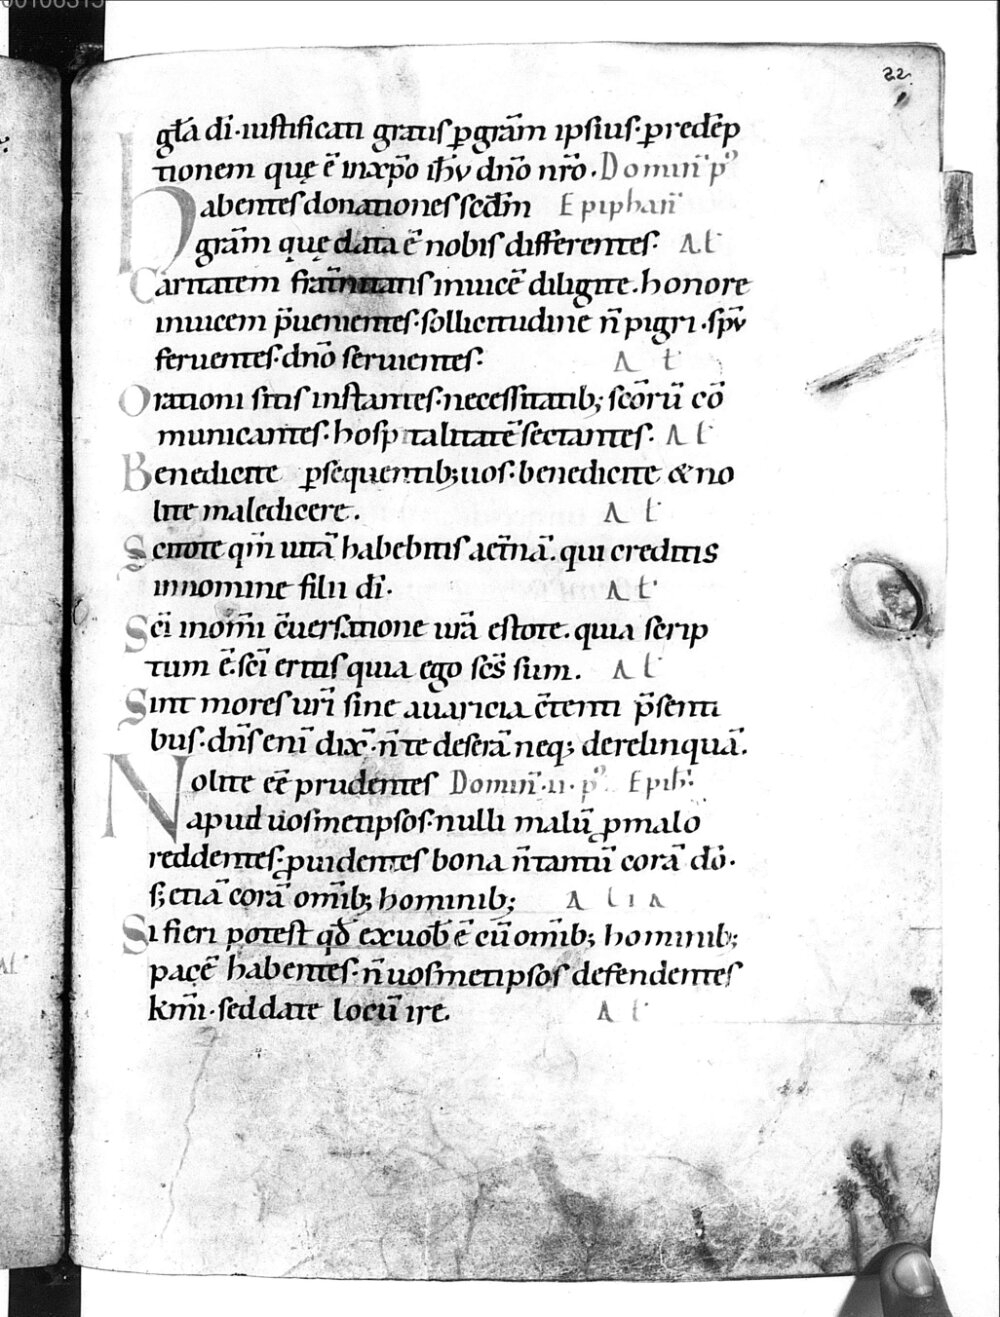 22
gl̄a dī· iustificati gratis ꝑ grām ipsius· ꝑ redēp
tionem quę ē in xp̄o ih̄u dn̄o nr̄o. Domin̄ p̊
Habentes donationes sed̄m Epiphan̄
grām quę data ē nobis differentes· Al̄
Caritatem frat̄nitatis inuicē diligite. honore
inuicem p̄uenientes· sollicitudine n̄ pigri· sp̄u
feruentes· dn̄o seruientes· Al̄
Orationi sitis instantes· necessitatib; sc̄orū cō
municantes· hospitalitatē sectantes· Al̄
Benedicite ꝑsequentib; uos· benedicite & no
lite maledicere. Al̄
Scitote qm̄ uitā habebitis aet̄nā. qui creditis
in nomine filii dī· Al̄
Sc̄i in om̄i c̄uersatione ur̄a estote. quia scrip
tum ē· sc̄i eritis quia ego sc̄s sum. Al̄
Sint mores ur̄i sine auaricia c̄tenti p̄senti
bus· dn̄s eni dix̄· n̄ te deserā neq; derelinquā.
Nolite eē prudentes Domin̄· II· p̊ Epih̄·
apud uosmetipsos· nulli malū ꝓ malo
reddentes· ꝓuidentes bona n̄ tantū corā dō·
s; etiā corā om̄ib; hominib; Alia
Si fieri potest qd̄ ex uob̄ ē cū om̄ib; hominib;
pacē habentes· n̄ uosmetipsos defendentes
km̄i· sed date locū irę. Al̄